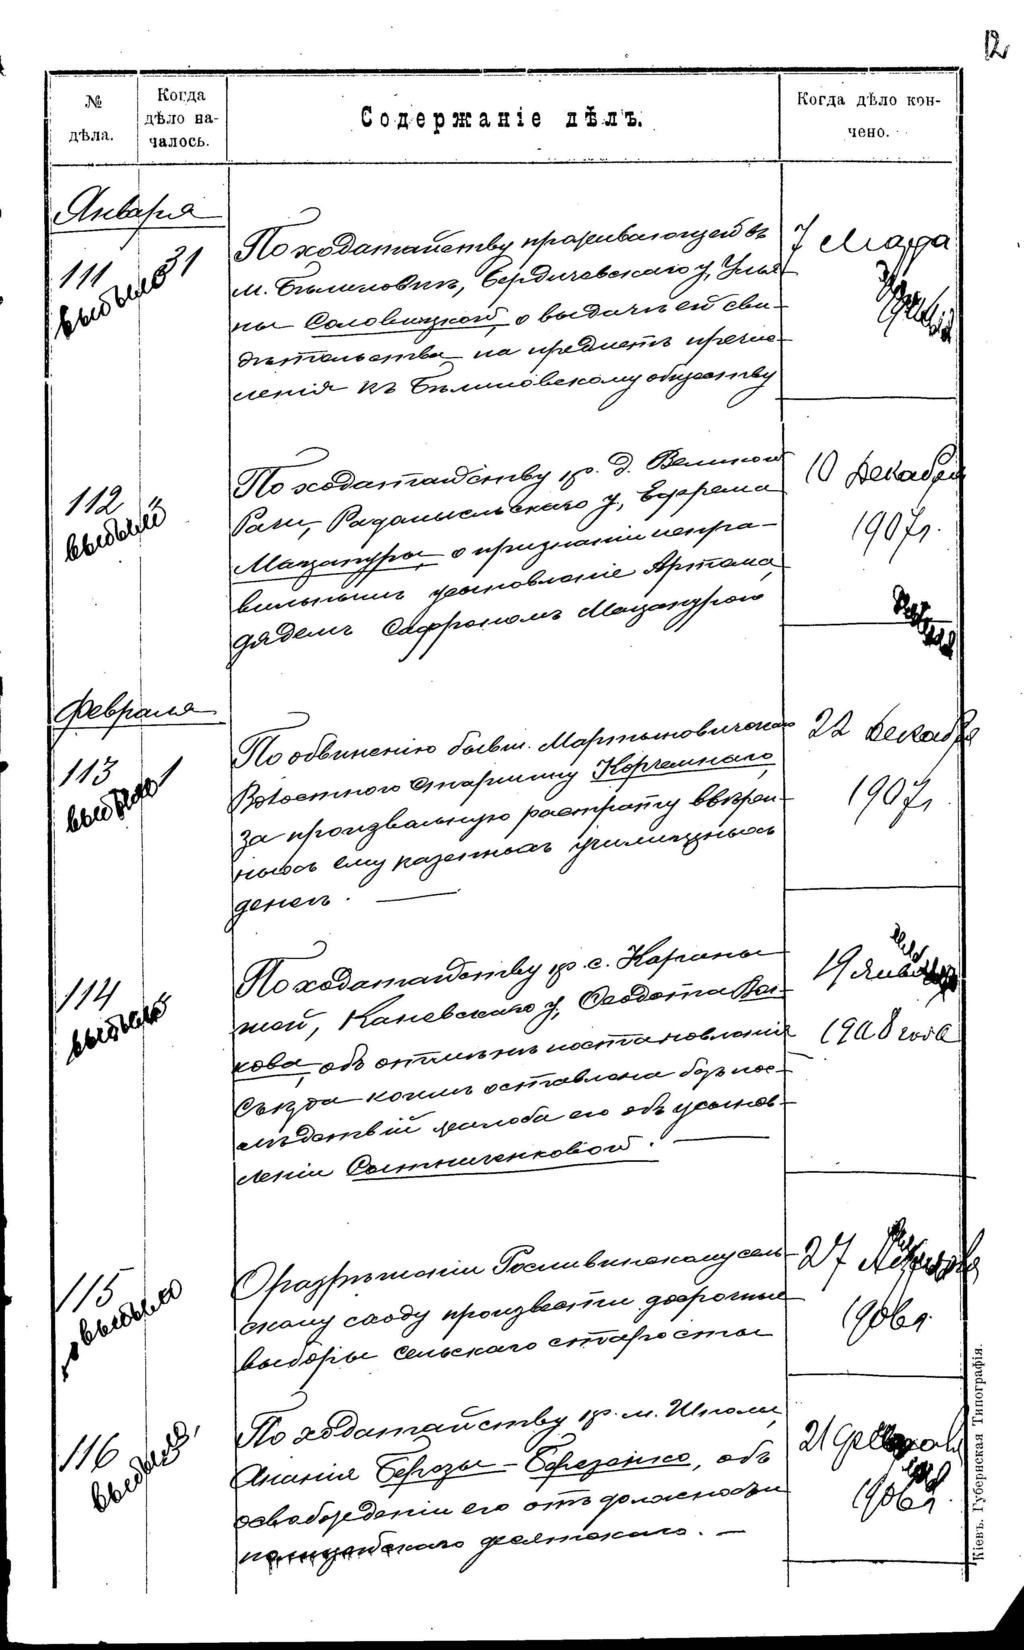 12
№ дѣла.
Когда дѣло началось.
Содержаніе дѣлъ.
Когда дѣло кончено.
Января
111 31
выбыло
По ходатайству проживающей въ
м. Бѣлиловкѣ, Бердичевскаго у, Улья-
ны Соловицкой, о выдачѣ ей сви-
дѣтельства на предметъ причис-
ленія къ Бѣлиловскому обществу
7 Марта
112 "
выбыло
По ходатайству кр. д. Великой
Рачи, Радомысльскаго у, Ефрема
Мацапуры о признаніи непра-
вильнымъ усыновленіе Артема,
дядемъ Сафрономъ Мацапурою
10 Декабря
1907г.
Февраля
113 1
выбыло
По обвиненію бывш. Мартыновичскаго
Волостного Старшину Корчемнаго,
за произвольную растрату ввѣрен-
ныхъ ему казенныхъ училищныхъ
денегъ. —
22 Декабря
1907г.
114 "
выбыло
По ходатайству кр. с. Карапы-
шей, Каневскаго у, Ѳеодота Вол-
кова, объ отмѣнѣ постановленія
Съѣзда коимъ оставлена безъ пос-
лѣдствій жалоба его объ усынов-
леніи Сытниченковой. —
19 Января
1908 года
115
выбыло
О разрѣшеніи Рославинскому сель-
скому сходу произвести досрочные
выборы Сельскаго старосты
27
1906г.
116
выбыло
По ходатайству кр. м. Шполы,
Ананія Березы-Березенко, объ
освобожденіи его отъ должности
полицейскаго десятскаго. —
21 Февраля
1906г.
Кіевъ. Губернская Типографія.